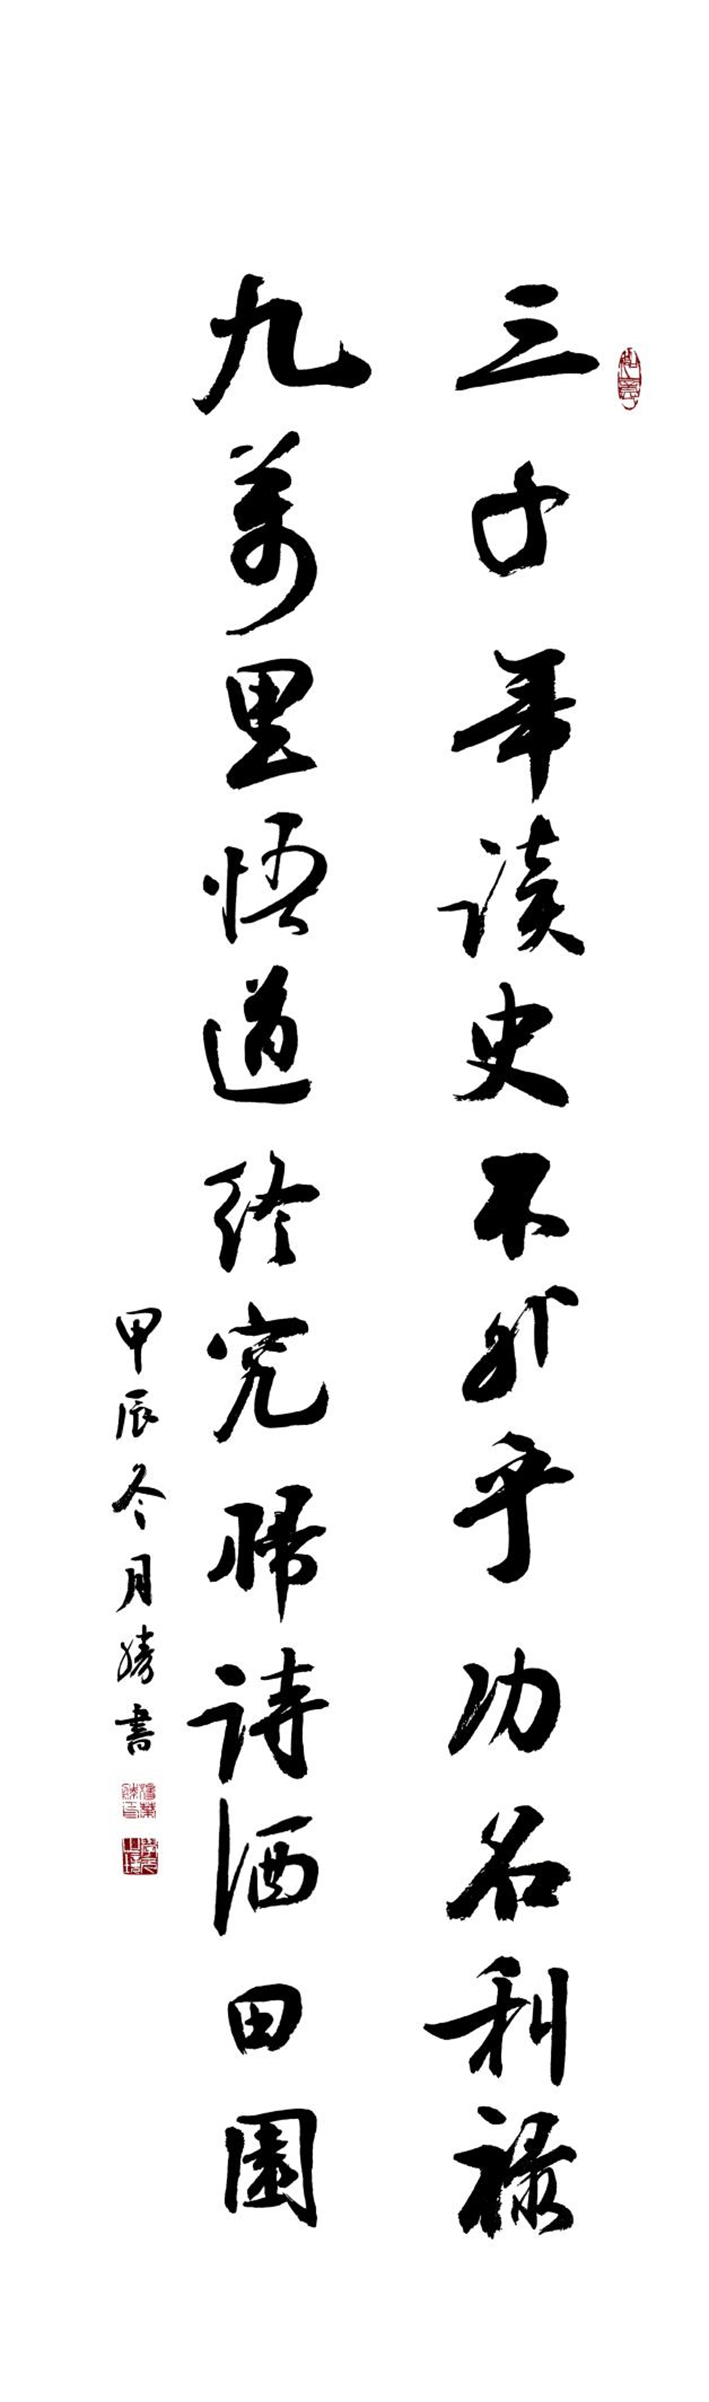 三千年读史不外乎功名利禄
九萬里悟道终究帰诗酒田園
甲辰冬月勝書